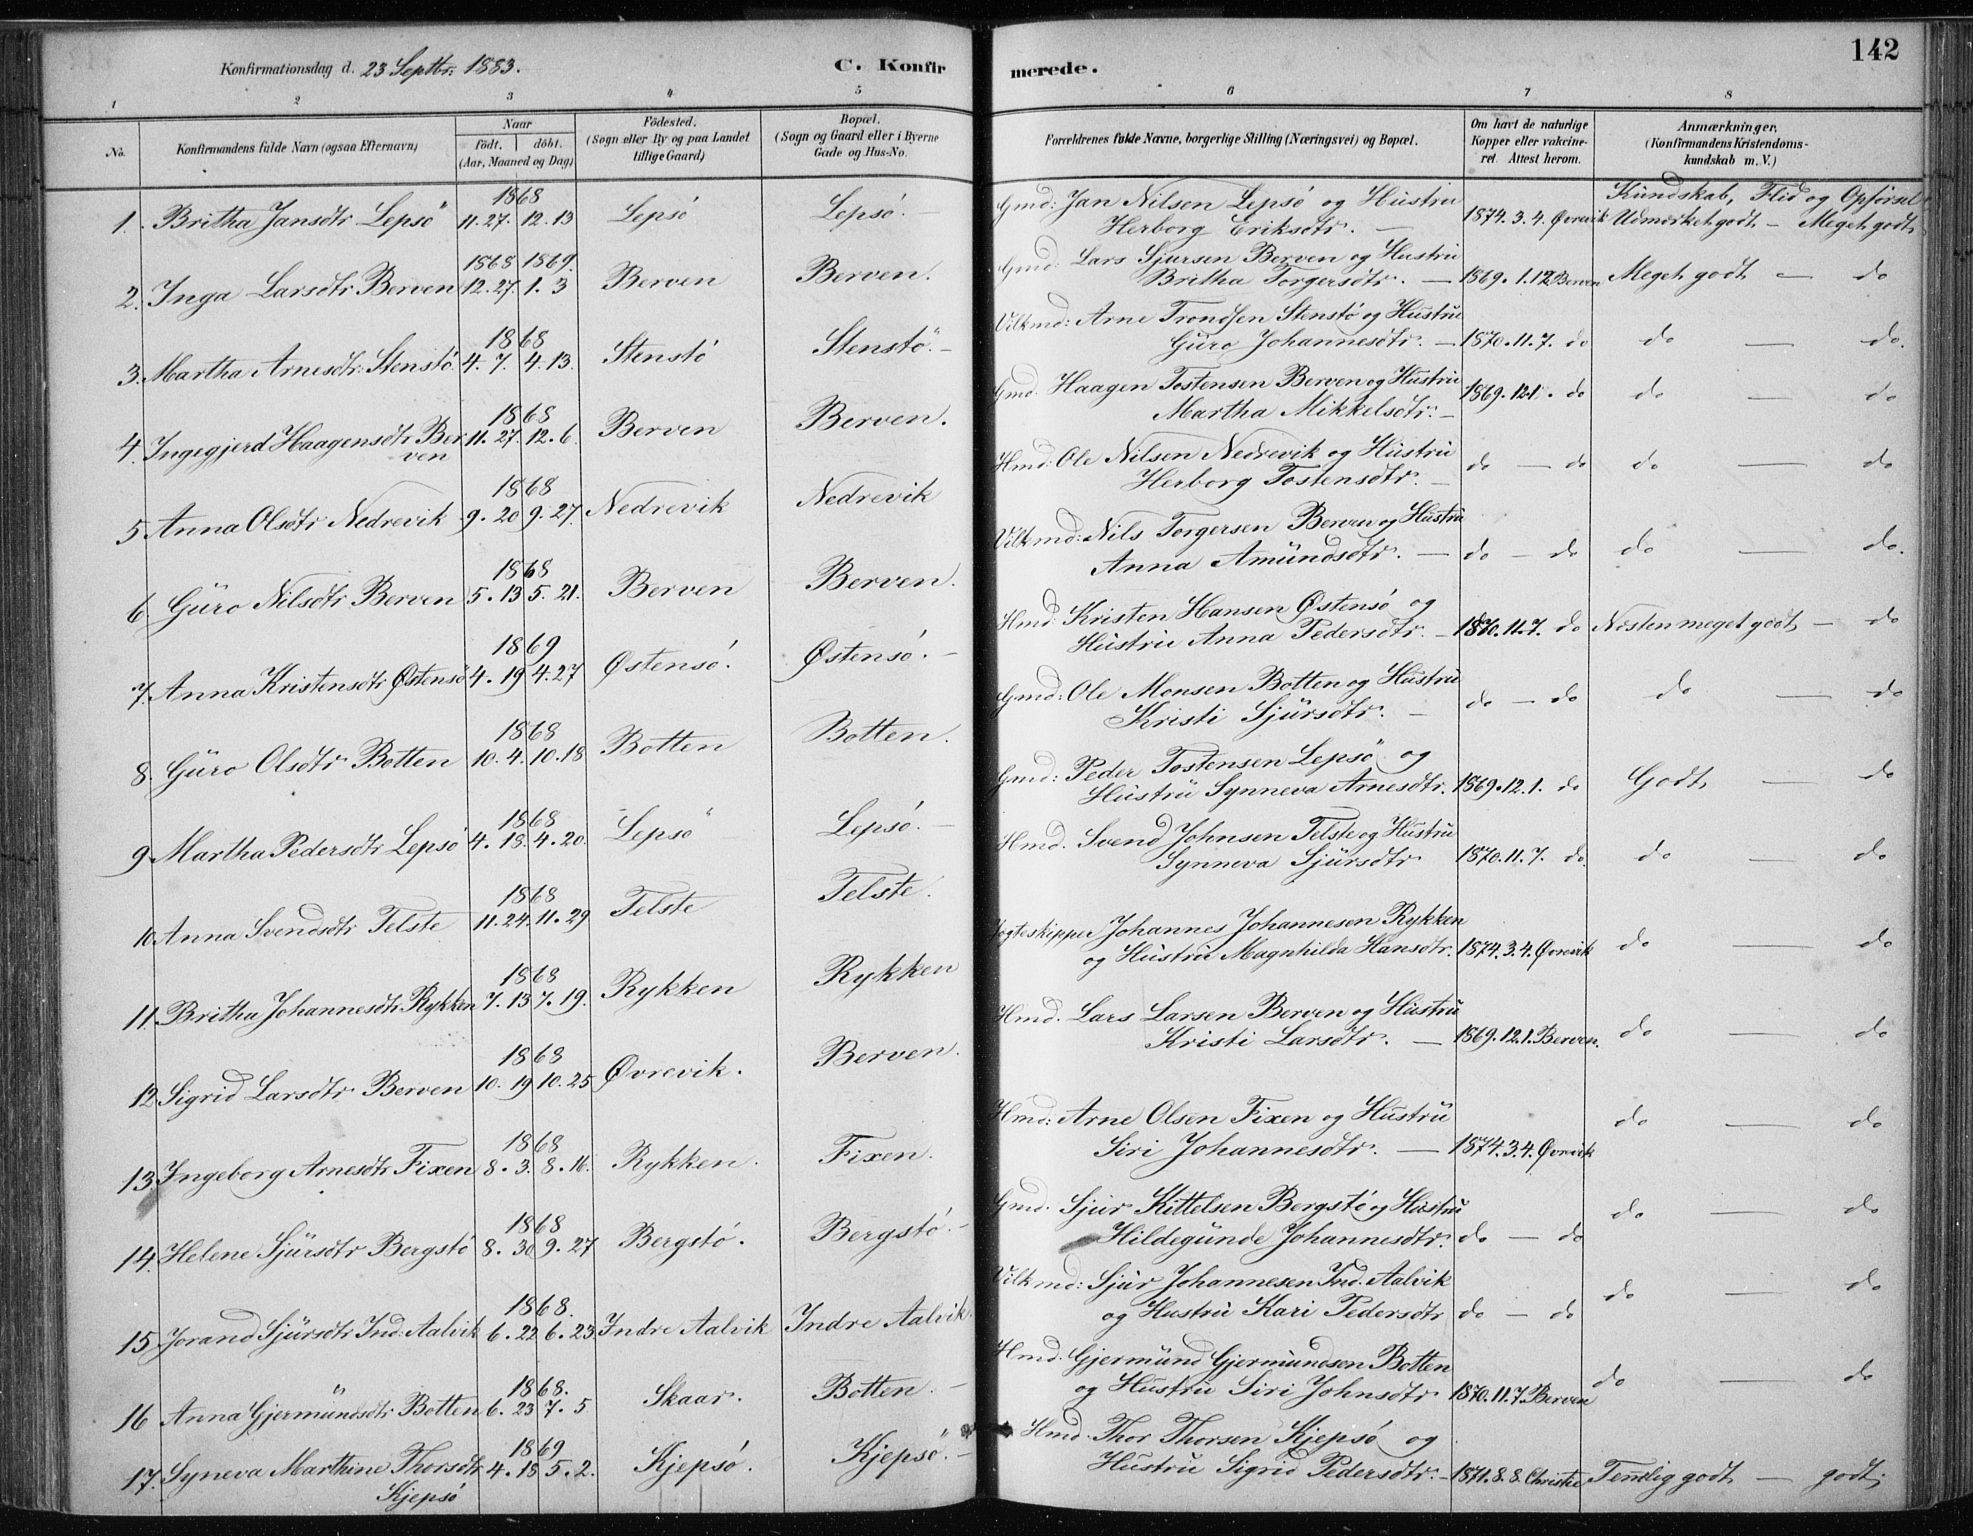 Konfirmationsdag d. 23 Septbr: 1883.
C. Konfirmerede.
142
1 2 3 4 5 6 7 8
No.
Konfirmandens fulde Navn (ogsaa Efternavn)
Naar
födt. döbt.
(Aar, Maaned og Dag)
Födested.
(Sogn eller By og paa Landet
tillige Gaard)
Bopæl.
(Sogn og Gaard eller i Byerne
Gade og Hus-No.
Forældrenes fulde Navne, borgerlige Stilling (Næringsvei) og Bopæl.
Om havt de naturlige
Kopper eller vakcine-
ret. Attest herom.
Anmærkninger.
(Konfirmandens Kristendoms-
kundskab m. V.)
1868 Gmd: Jan Nilsen Lepsö og Hustru Kundskab, Flid og Opförsel
1. Britha Jansdtr Lepsö 11.27. 12.13 Lepsö Lepsö. Herborg Eriksdtr. — 1874.3.4. Øvrevik Udmærket godt — Meget godt
1868 1869. Gmd: Lars Sjursen Berven og Hustru
2. Inga Larsdtr Berven 12.27. 1.3 Berven Berven. Britha Torgersdtr. — 1869.1.12 Berven Meget godt — do
1868 Vilkmd: Arne Trondsen Stenstö og Hustru
3. Martha Arnesdtr. Stenstö 4.7. 4.13. Stenstö Stenstö. — Guro Johannesdtr. — 1870.11.7. do do — do.
1868 Gmd. Haagen Tostensen Berven og Hustru
4. Ingegjerd Haagensdtr Ber 11.27. 12.6. Berven Berven. Martha Mikkelsdtr. — 1869.12.1. do do — do
ven
1868 Hmd: Ole Nilsen Nedrevik og Hustru
5 Anna Olsdtr Nedrevik 9.20 9.27. Nedrevik Nedrevik Herborg Tostensdtr. — do — do do — do
1868 Vilkmd: Nils Torgersen Berven og Hustru
6. Guro Nilsdtr Berven 5.13 5.21. Berven Berven. Anna Amundsdtr. — do — do do — do.
1869 Hmd: Kristen Hansen Østensö og
7. Anna Kristensdtr Østensö 4.19 4.27 Østensö. Østensö. — Hustru Anna Pedersdtr. — 1870.11.7. do Næsten meget godt — do
1868 Gmd: Ole Monsen Botten og Hustru
8. Guro Olsdtr Botten 10.4. 10.18 Botten Botten. Kristi Sjürsdtr. — do — do do — do
1868 Gmd: Peder Tostensen Lepsö og
9 Martha Pedersdtr Lepsö 4.18. 4.20. Lepsö Lepsö. — Hustru Synneva Arnesdtr. 1869.12.1. do Godt — do
1868 Hmd. Svend Johnsen Telste og Hustru
10. Anna Svendsdtr Telste 11.24. 11.29 Telste Telste. Synneva Sjürsdtr 1870.11.7. do. do — do
1868 Jagteskipper Johannes Johannesen Rykken
11. Britha Johannesdtr Rykken 7.13 7.19. Rykken Rykken og Hustru Magnhilda Hansdtr. 1874.3.4. Øvrevik do — do
1868 Hmd. Lars Larsen Berven og Hustru
12 Sigrid Larsdtr Berven 10.19 10.25 Øvrevik. Berven. Kristi Larsdtr. — 1869.12.1. Berven. do — do
1868 Hmd: Arne Olsen Fixen og Hustru
13. Ingeborg Arnesdtr Fixen 8.3. 8.16. Rykken. Fixen. Siri Johannesdtr. — 1874.3.4. Øvrevik do — do
1868 Gmd. Sjur Kittelsen Bergstö og Hustru
14. Helene Sjürsdtr Bergstö 8.30 9.27 Bergstö. Bergstö. — Hildegunde Johannesdtr. do — do do — do
1868. Vilkmd: Sjur Johannesen Ind. Aalvik
15 Jorand Sjürsdtr Ind: Aalvik 6.22 6.23 Indre Aalvik Indre Aalvik. og Hustru Kari Pedersdtr do — do do — do
1868. Hmd. Gjermund Gjermundsen Botten
16 Anna Gjermundsdtr Botten 6.23 7.5 Skaar. Botten. — og Hustru Siri Johnsdtr 1870.11.7. Berven do — do
1869 Hmd. Thor Thorsen Kjepsö og
17. Syneva Marthine Thorsdtr 4.18 5.2. Kjepsö. Kjepsö. — Hustru Sigrid Pedersdtr. — 1871.8.8. Christie Temlig godt — godt.
Kjepsö